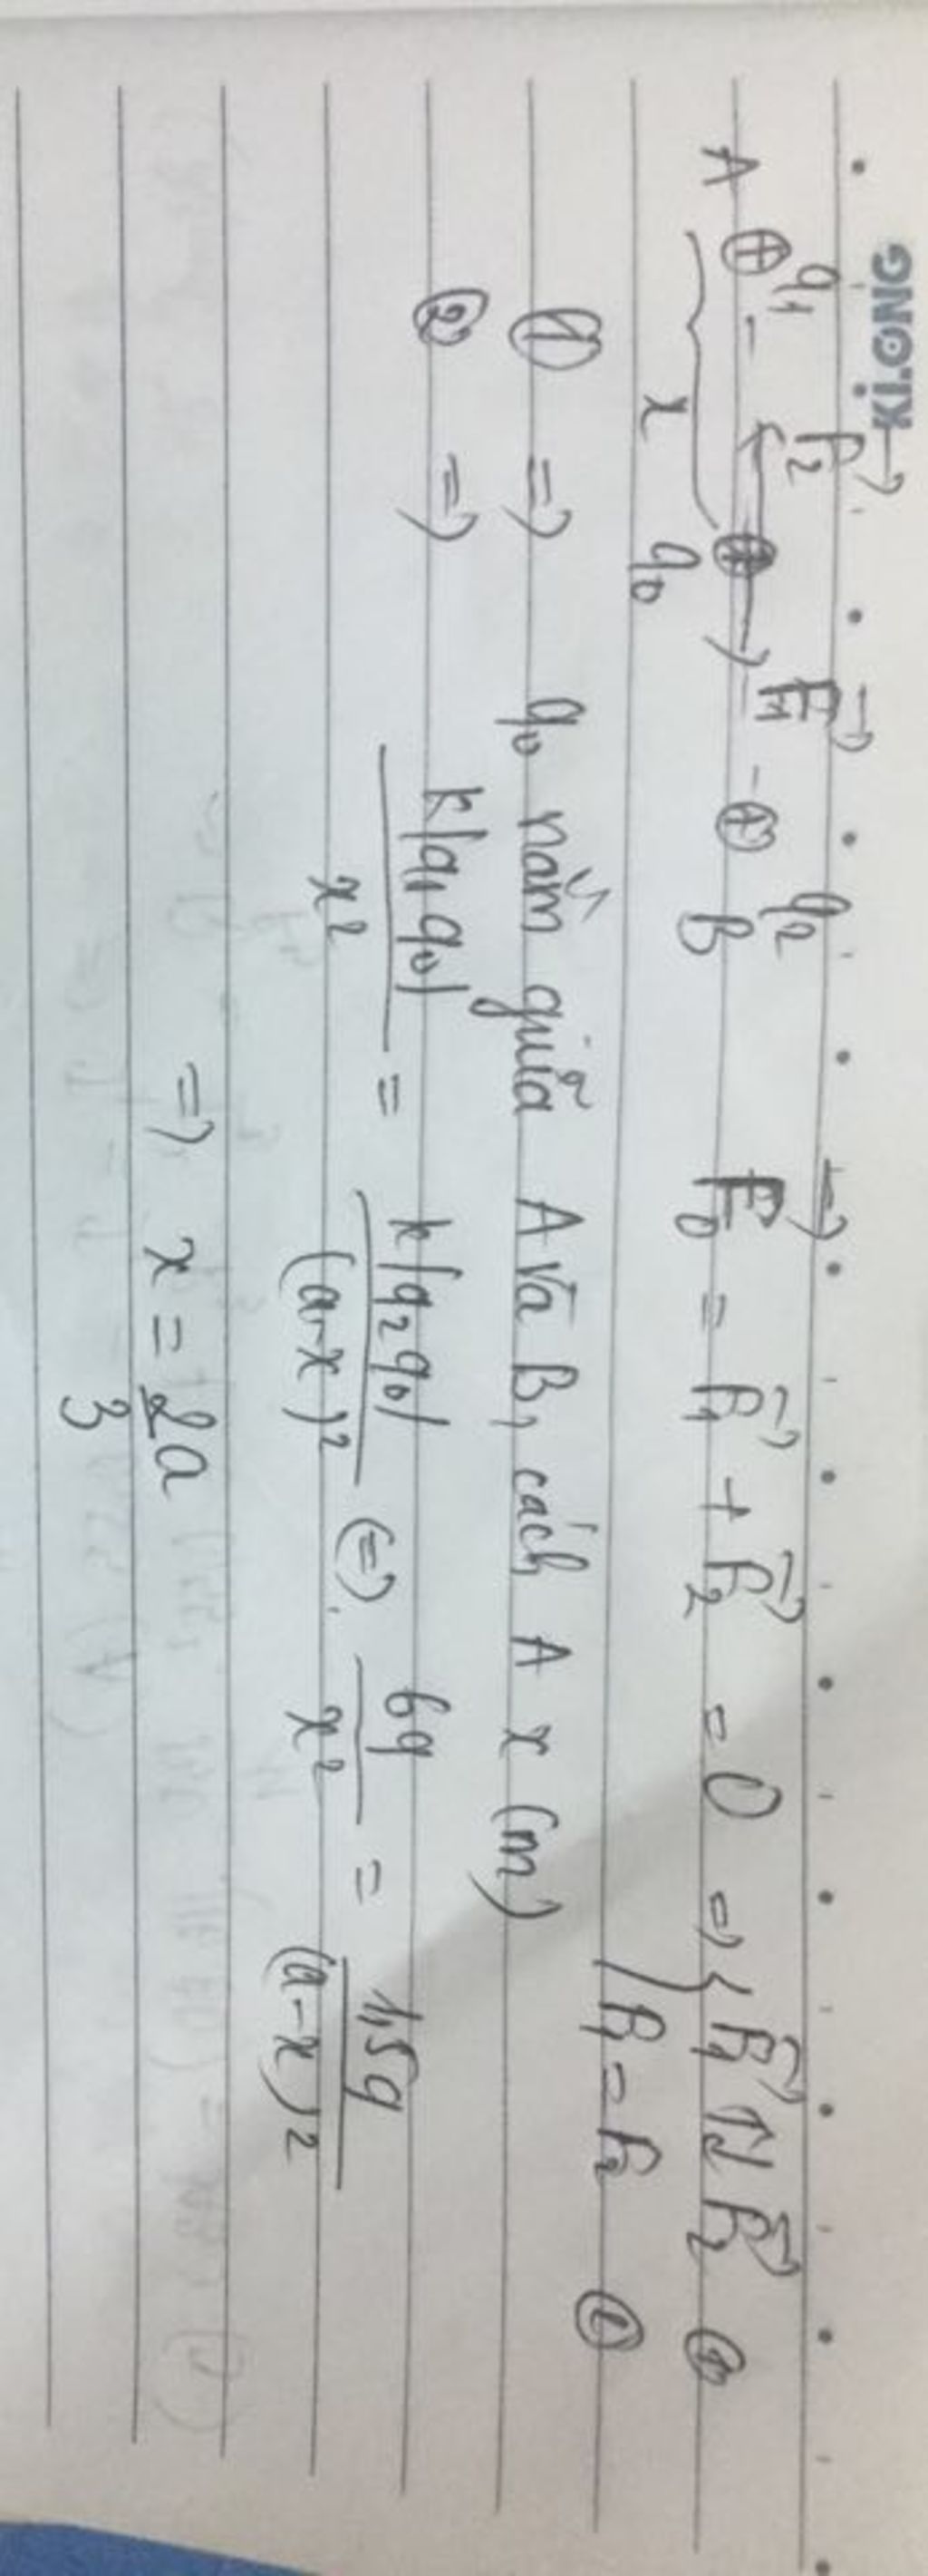 Ki.ONG
A ⊕ q₁ - F₂→ ⊕ q₀ → F₁→ - ⊕ q₂ B F₀→ = F₁→ + F₂→ = 0 => { F₁→ ↑↓ F₂→ ①
x F₁ = F₂ ②
① => q₀ nằm giữa A và B, cách A x (m)
② => k|q₁q₀| / x² = k|q₂q₀| / (a-x)² (=). 6q / x² = 1,5q / (a-x)²
=> x = 2a / 3